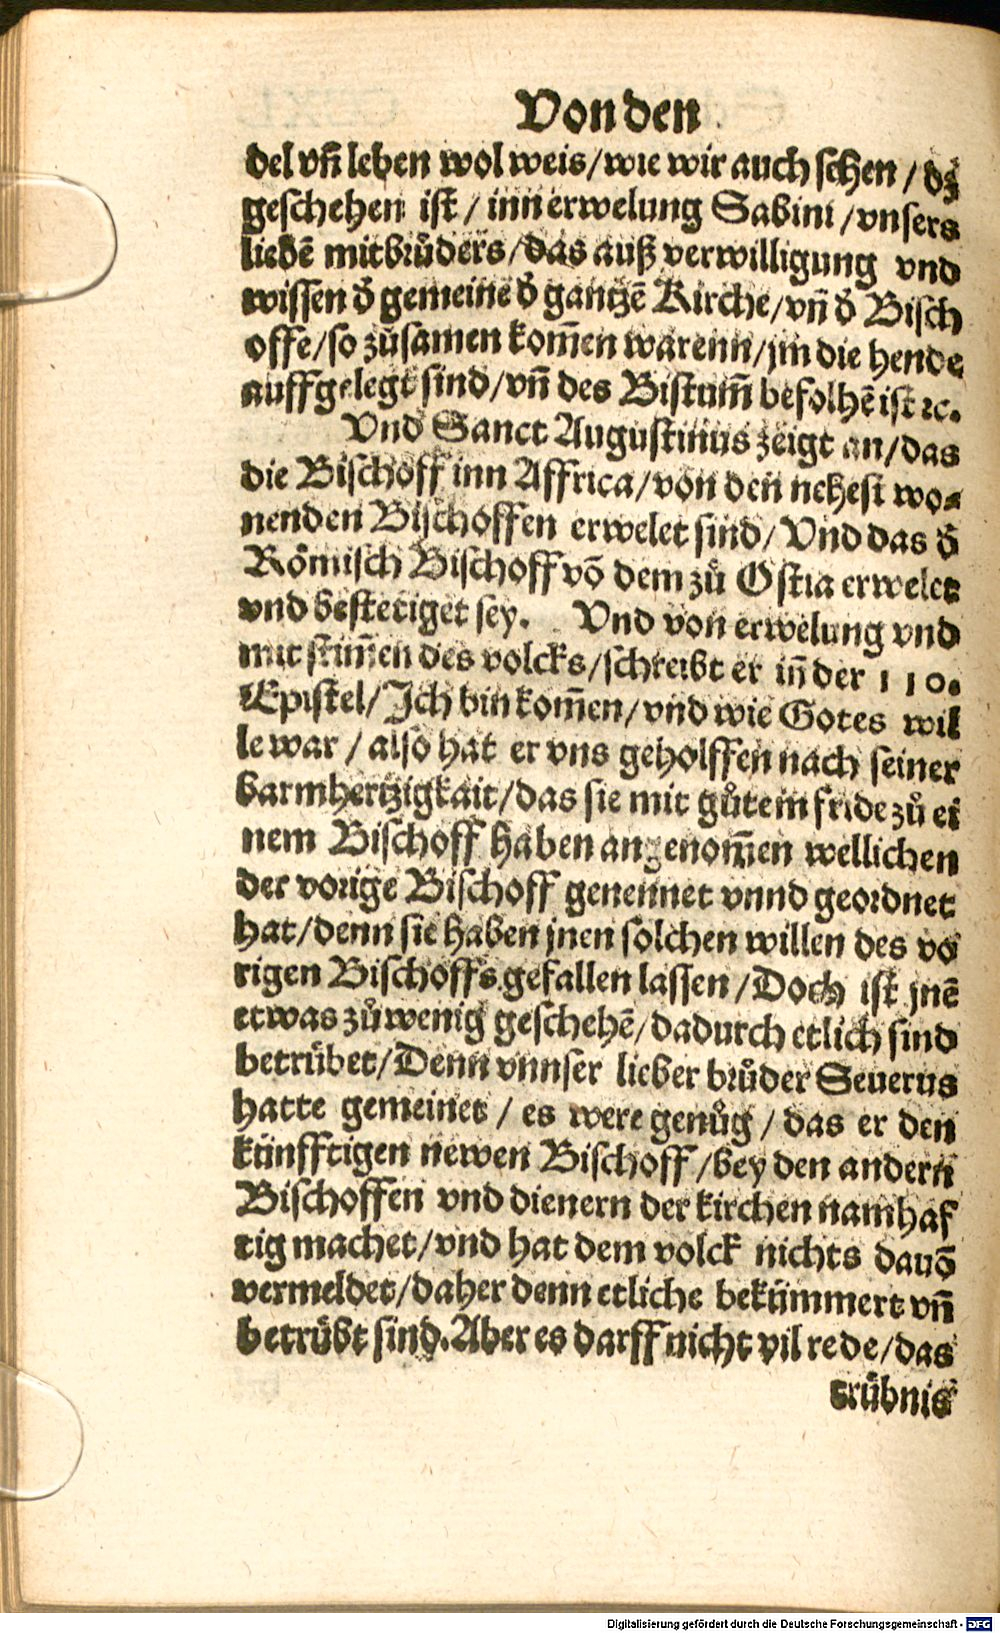 Von den
del vñ leben wol weis/wie wir auch sehen / dz
geschehen ist / inn erwelung Sabini /vnsers
liebẽ mitbrůders/das auß verwilligung vnd
wissen d̓ gemeine d̓ gantzẽ Kirche/vñ d̓ Bisch
offe/so zůsamen kom̃en warenn/jm die hende
auffgelegt sind/vñ des Bistum̃ befolhẽ ist ꝛc.
Vnd Sanct Augustinus zeigt an/das
die Bischoff inn Affrica/von den nehest wo⸗
nenden Bischoffen erwelet sind/ Vnd das d̓
Römisch Bischoff võ dem zů Ostia erwelet
vnd bestetiget sey. Vnd von erwelung vnd
mit stim̃en des volcks/schreibt er iñ der 110.
Epistel/Ich bin kom̃en/vnd wie Gotes wil
le war / also hat er vns geholffen nach seiner
barmhertzigkait/das sie mit gůtem fride zů ei
nem Bischoff haben angenom̃en wellichen
der vorige Bischoff genennet vnnd geordnet
hat/denn sie haben jnen solchen willen des vo
rigen Bischoffs gefallen lassen /Doch ist jnẽ
etwas zůwenig geschehẽ/dadurch etlich sind
betrübet/Denn vnnser lieber brůder Seuerus
hatte gemeinet / es were genůg / das er den
künfftigen newen Bischoff /bey den andern
Bischoffen vnd dienern der kirchen namhaf
tig machet/vnd hat dem volck nichts dauõ
vermeldet/daher denn etliche bekümmert vñ
betrübt sind.Aber es darff nicht vil rede/das
trübnis
Digitalisierung gefördert durch die Deutsche Forschungsgemeinschaft - DFG